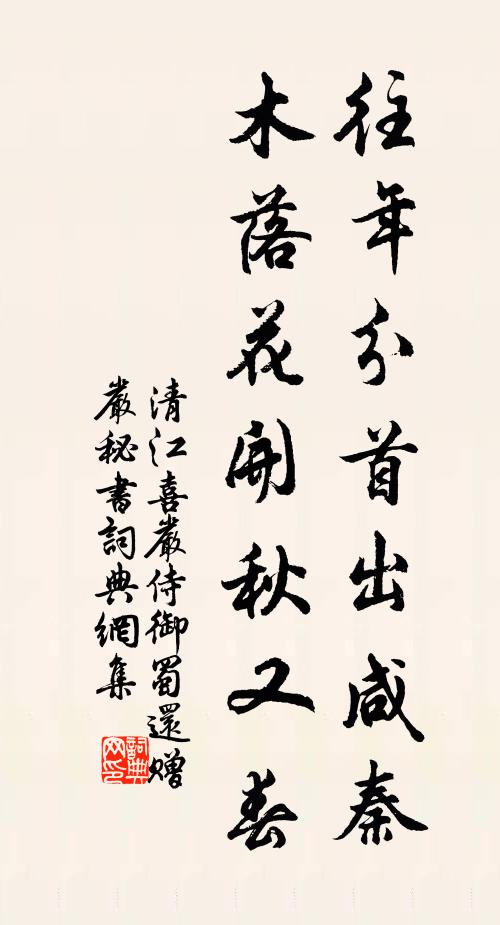 往年分首出咸秦
木落花開秋又春
清江喜嚴侍御蜀還贈
嚴秘書詞典網集
詞典網印